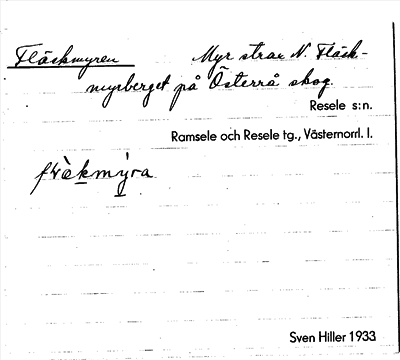 Fläskmyren Myr strax N. Fläsk-
myrberget på Österrå skog.
Resele s:n.
Ramsele och Resele tg., Västernorrl. l.
Sven Hiller 1933